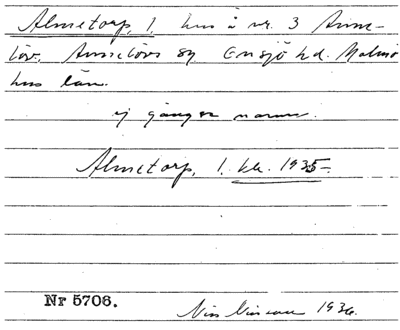 Almetorp, 1 hus å nr. 3 Anne-
löv. Annelövs sn Onsjö hd. Malmö
hus län.
ej gängse namn.
Almetorp, 1. kla. 1935.
Nr 5706.
1936.